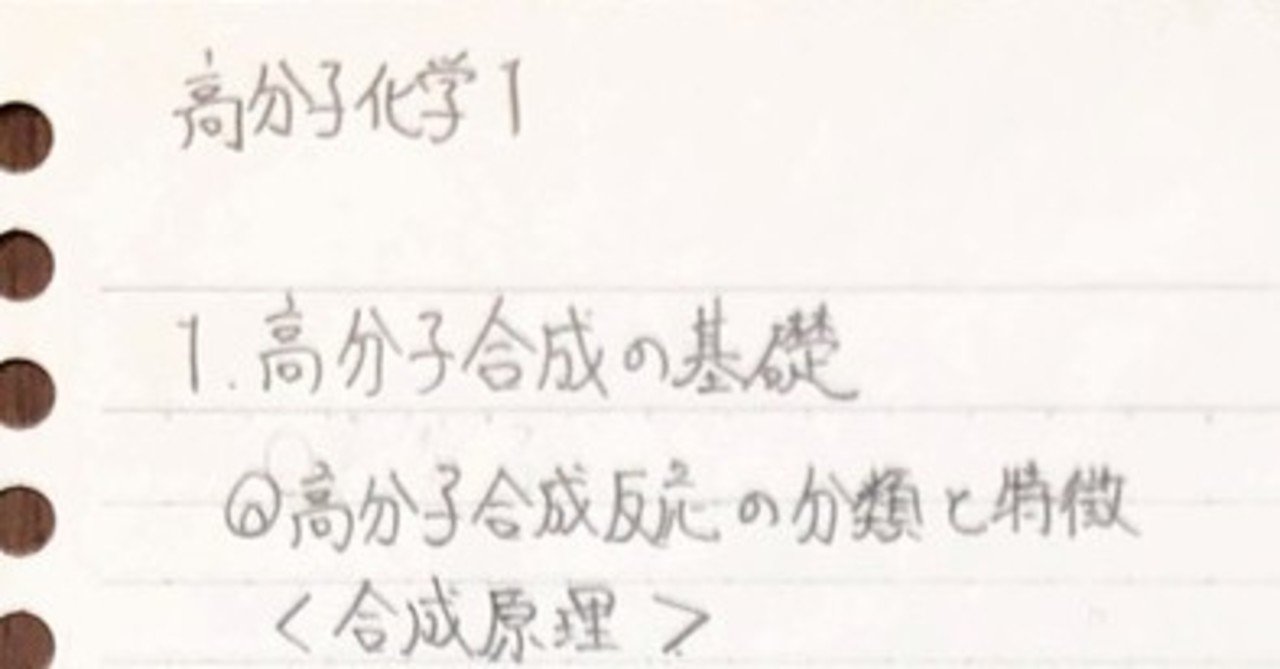 高分子化学1
1.高分子合成の基礎
◎高分子合成反応の分類と特徴
<合成原理>